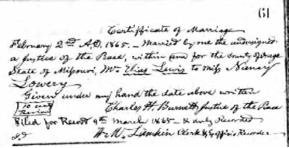 61
Certifficate of Marriage
February 2nd A.D. 1865 - Married by me the undersigned
a justice of the Peace, within and for the county of
State of Missouri, Mr Elias Lewis to miss Nancy
Lowery
Given under my hand the date above written
Charles H Burnett justice of the Peace
Filed for Record 9th march 1865 & duly Recorded
W. Lamkin Clerk & Exoffico Recorder